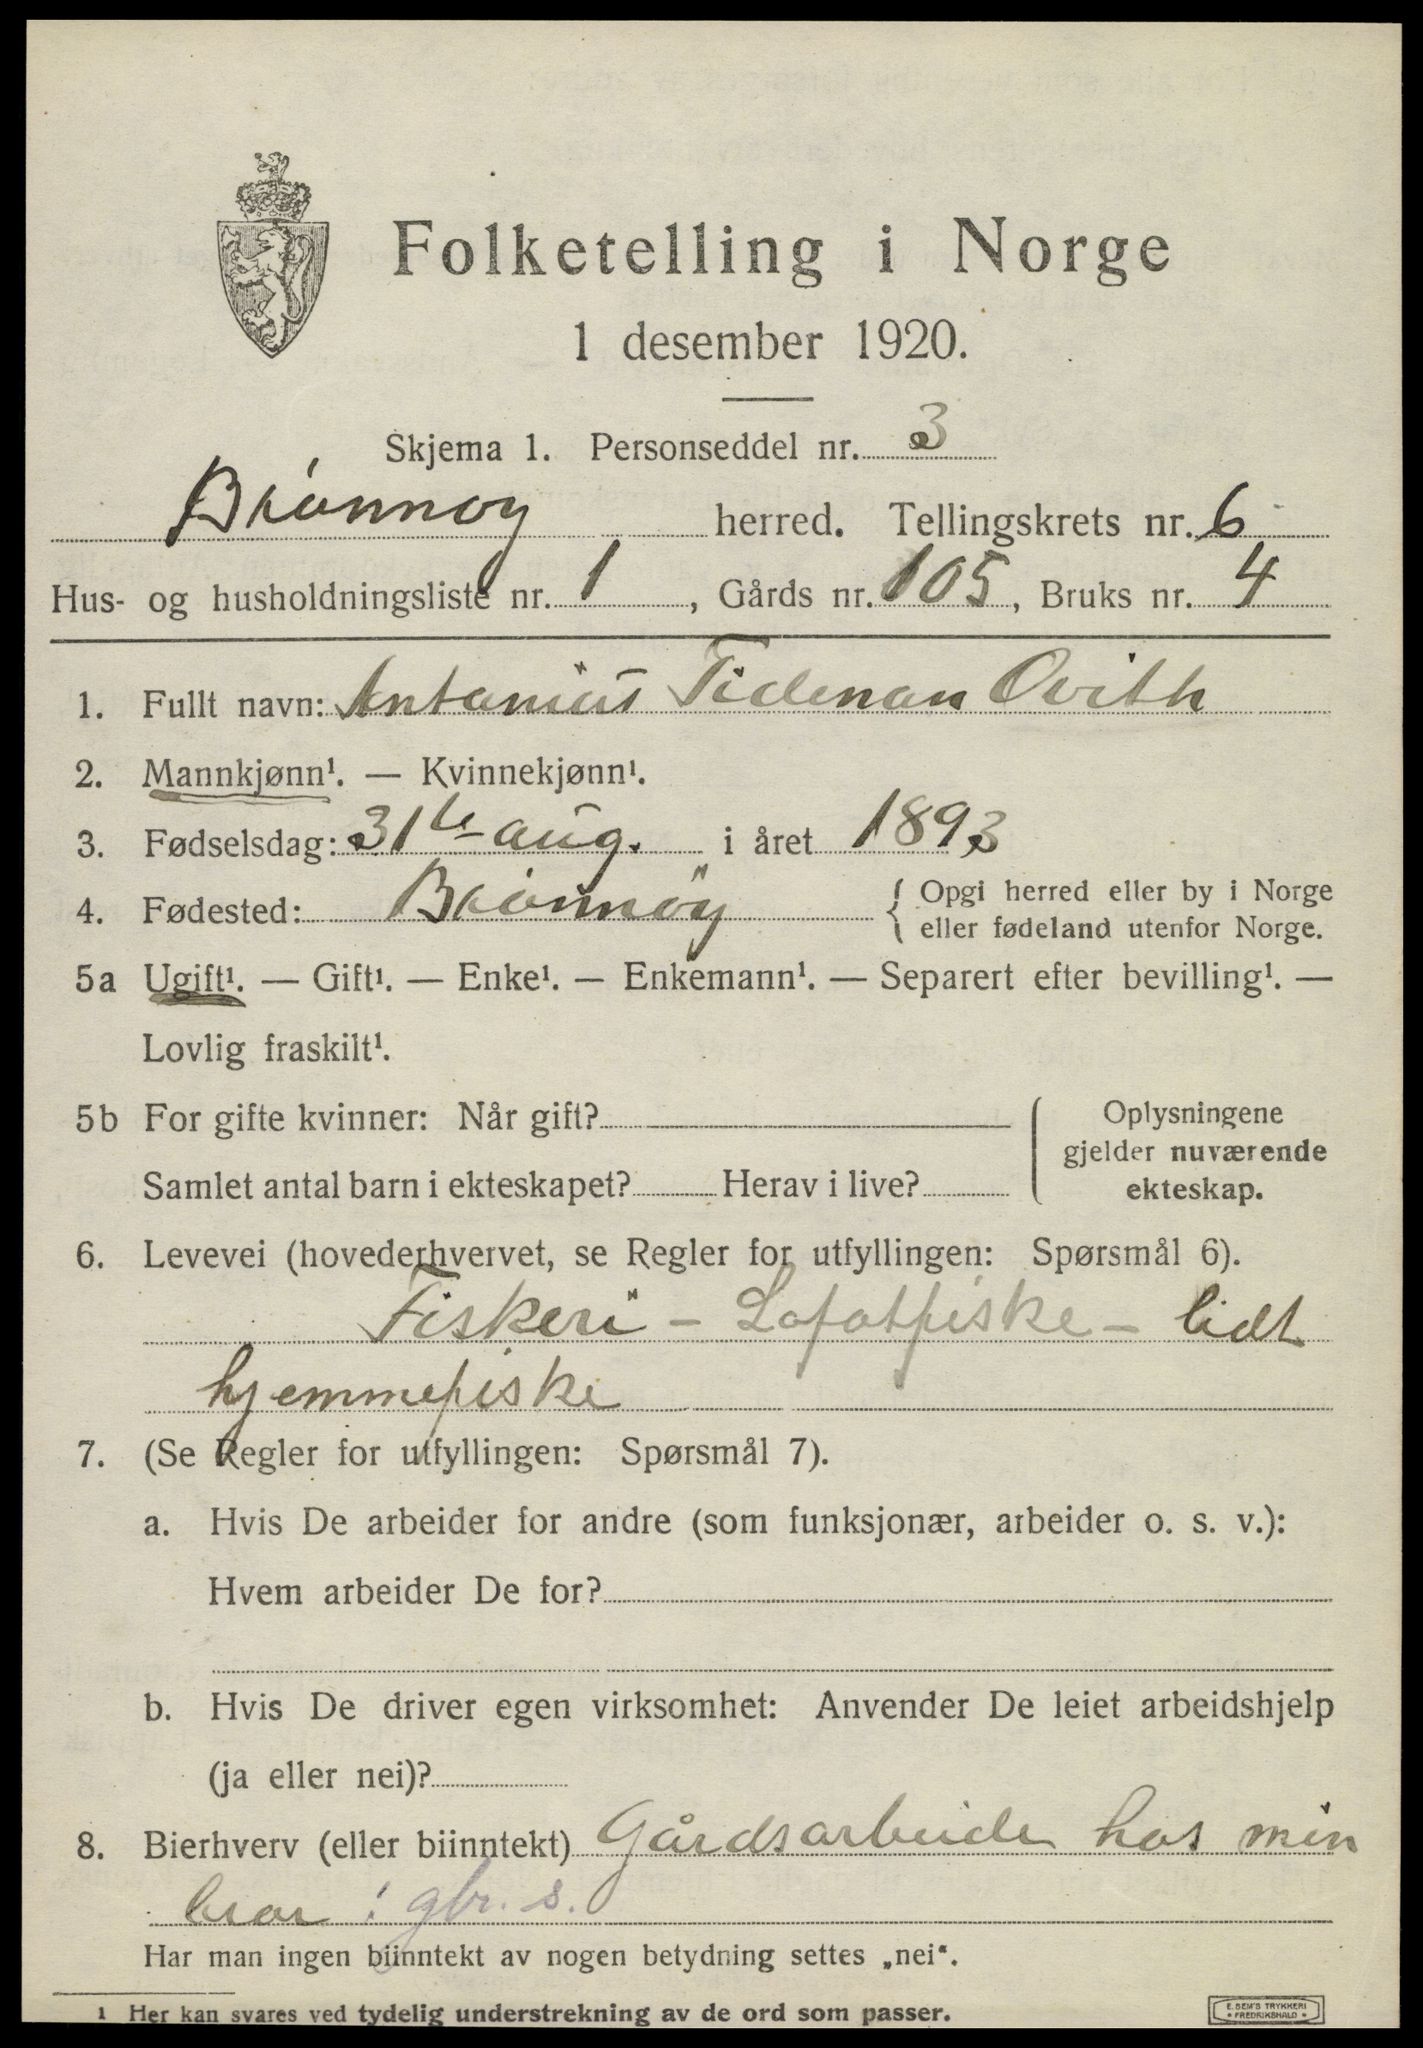 Folketelling i Norge
1 desember 1920.
Skjema 1. Personseddel nr. 3
Brønnøy herred. Tellingskrets nr. 6
Hus- og husholdningsliste nr. 1, Gårds nr. 105, Bruks nr. 4
1. Fullt navn: Antonius Tideman Qvith
2. Mannkjønn¹. — Kvinnekjønn¹.
3. Fødselsdag: 31te aug. i året 1893
4. Fødested: Brønnøy { Opgi herred eller by i Norge
eller fødeland utenfor Norge.
5a Ugift¹. — Gift¹. — Enke¹. — Enkemann¹. — Separert efter bevilling¹. —
Lovlig fraskilt¹.
5b For gifte kvinner: Når gift?
Samlet antal barn i ekteskapet? Herav i live?
Oplysningene
gjelder nuværende
ekteskap.
6. Levevei (hovederhvervet, se Regler for utfyllingen: Spørsmål 6).
Fiskeri - Lofotfiske - lidt
hjemmefiske
7. (Se Regler for utfyllingen: Spørsmål 7).
a. Hvis De arbeider for andre (som funksjonær, arbeider o. s. v.):
Hvem arbeider De for?
b. Hvis De driver egen virksomhet: Anvender De leiet arbeidshjelp
(ja eller nei)?
8. Bierhverv (eller biinntekt) Gårdsarbeide hos min
bror : gbr. s.
Har man ingen biinntekt av nogen betydning settes „nei“.
1 Her kan svares ved tydelig understrekning av de ord som passer.
E. SEM'S TRYKKERI
• FREDRIKSHALD •